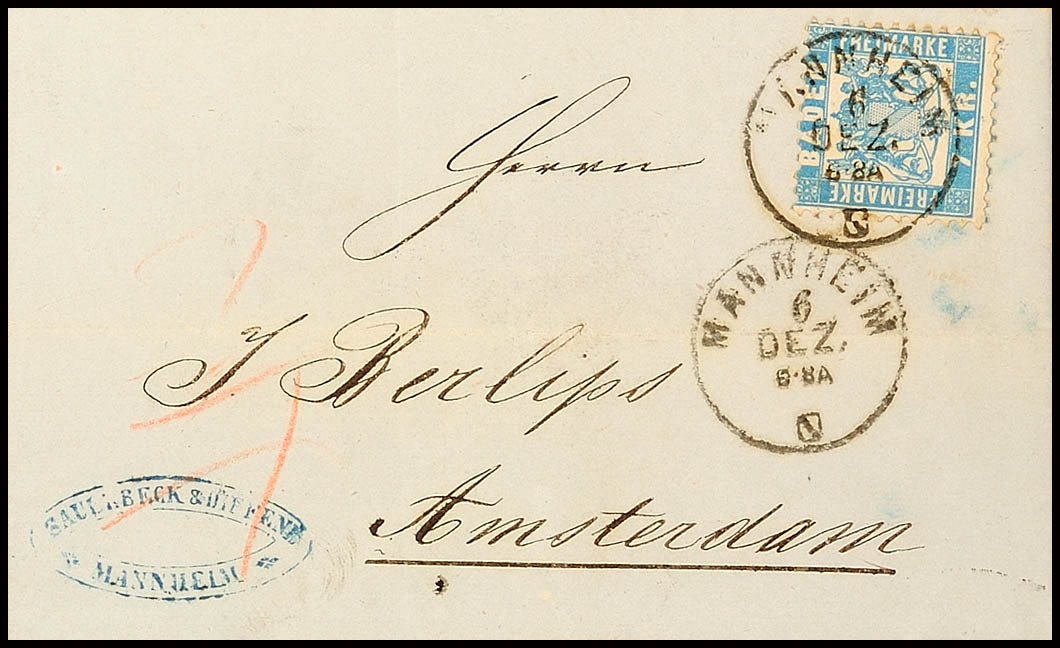 FREIMARKE
BADEN
7 KR.
FREIMARKE
MANNHEIM
6
DEZ.
6-8A
Herrn
MANNHEIM
6
DEZ.
6-8A
J Berlips
Amsterdam
MANNHEIM